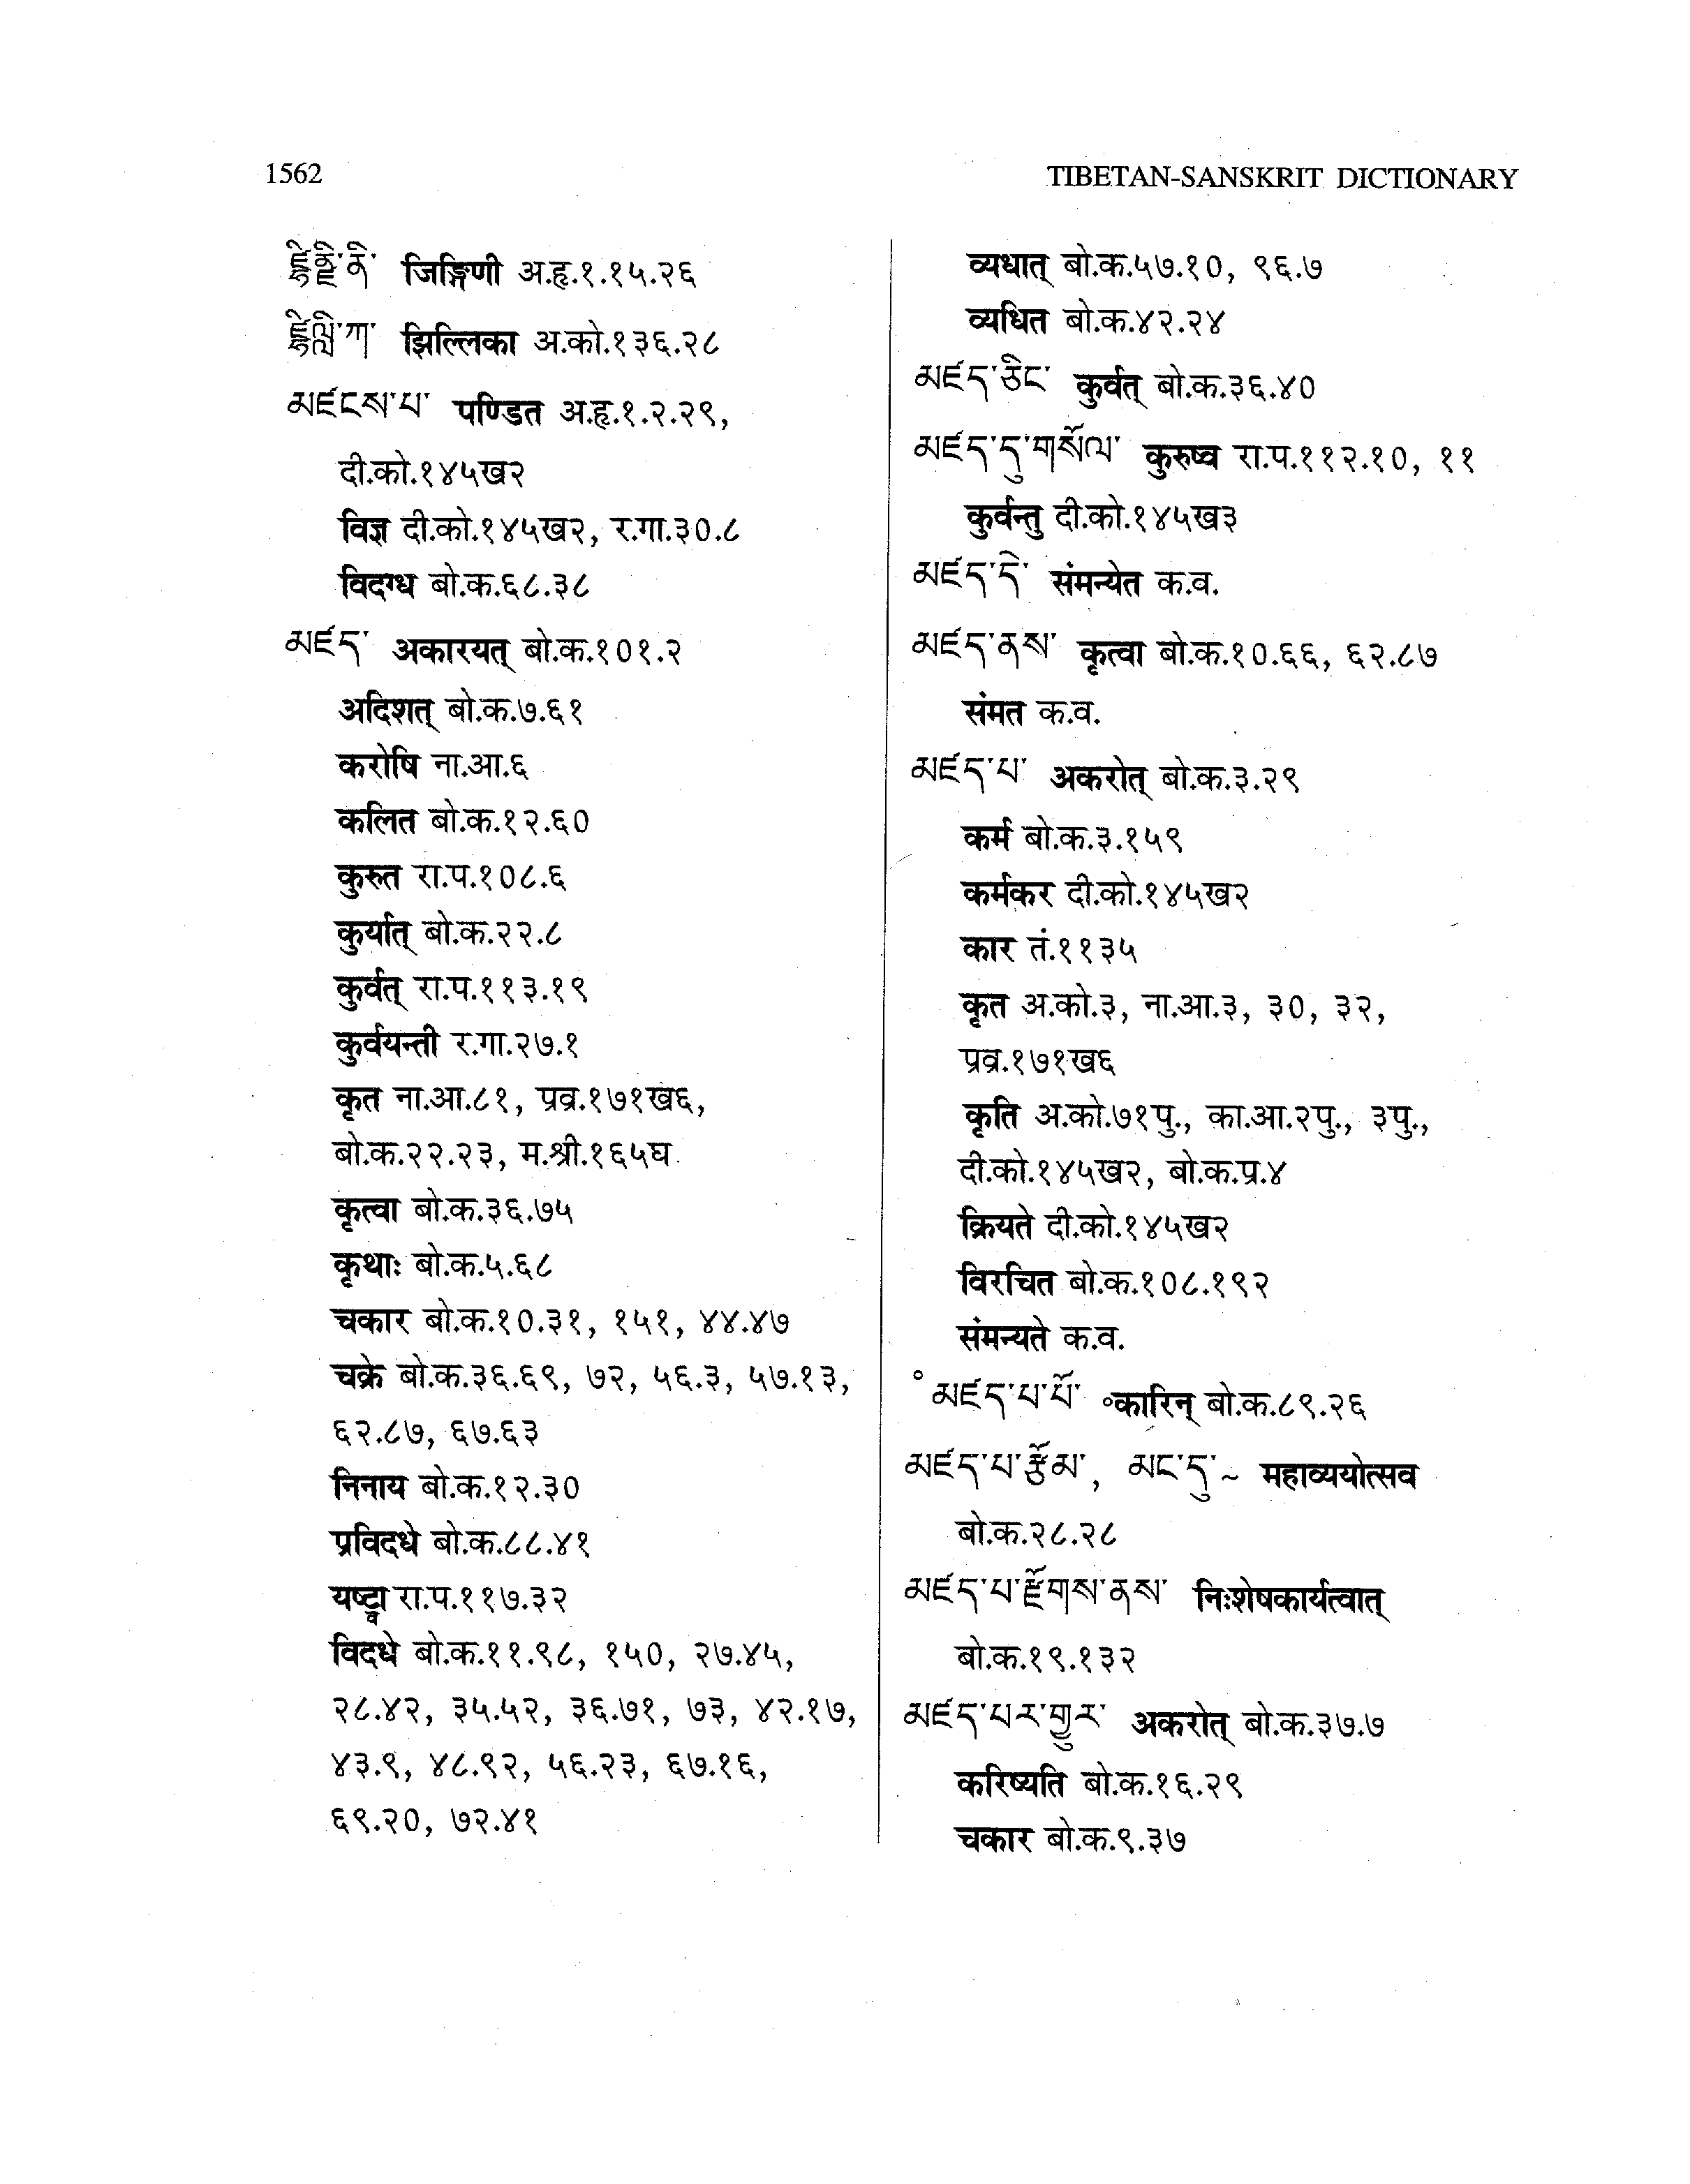 1562
TIBETAN-SANSKRIT DICTIONARY
जिङ्गिणी अ.हृ.१.१५.२६
झिल्लिका अ.को.१३६.२८
མཛངས་པ་ पण्डित अ.हृ.१.२.२९,
दी.को.१४५ख२
विज्ञ दी.को.१४५ख२, र.गा.३०.८
विदग्ध बो.क.६८.३८
མཛད་ अकारयत् बो.क.१०१.२
अदिशत् बो.क.७.६१
करोषि ना.आ.६
कलित बो.क.१२.६०
कुरुत रा.प.१०८.६
कुर्यात् बो.क.२२.८
कुर्वत् रा.प.११३.१९
कुर्वयन्ती र.गा.२७.१
कृत ना.आ.८१, प्रव्र.१७१ख६,
बो.क.२२.२३, म.श्री.१६५घ
कृत्वा बो.क.३६.७५
कृथाः बो.क.५.६८
चकार बो.क.१०.३१, १५१, ४४.४७
चक्रे बो.क.३६.६९, ७२, ५६.३, ५७.१३,
६२.८७, ६७.६३
निनाय बो.क.१२.३०
प्रविदधे बो.क.८८.४१
यष्ट्वा रा.प.११७.३२
विदधे बो.क.११.९८, १५०, २७.४५,
२८.४२, ३५.५२, ३६.७१, ७३, ४२.१७,
४३.९, ४८.९२, ५६.२३, ६७.१६,
६९.२०, ७२.४१
व्यधात् बो.क.५७.१०, ९६.७
व्यधित बो.क.४२.२४
མཛད་ཅིང་ कुर्वत् बो.क.३६.४०
མཛད་དུ་གསོལ་ कुरुष्व रा.प.११२.१०, ११
कुर्वन्तु दी.को.१४५ख३
མཛད་དེ་ संमन्येत क.व.
མཛད་ནས་ कृत्वा बो.क.१०.६६, ६२.८७
संमत क.व.
མཛད་པ་ अकरोत् बो.क.३.२९
कर्म बो.क.३.१५९
कर्मकर दी.को.१४५ख२
कार तं.११३५
कृत अ.को.३, ना.आ.३, ३०, ३२,
प्रव्र.१७१ख६
कृति अ.को.७१पु., का.आ.२पु., ३पु.,
दी.को.१४५ख२, बो.क.प्र.४
क्रियते दी.को.१४५ख२
विरचित बो.क.१०८.१९२
संमन्यते क.व.
°མཛད་པ་པོ་ ॰कारिन् बो.क.८९.२६
མཛད་པ་རྩོམ་, མང་དུ་~ महाव्ययोत्सव
बो.क.२८.२८
མཛད་པ་རྫོགས་ནས་ निःशेषकार्यत्वात्
बो.क.१९.१३२
མཛད་པར་གྱུར་ अकरोत् बो.क.३७.७
करिष्यति बो.क.१६.२९
चकार बो.क.९.३७